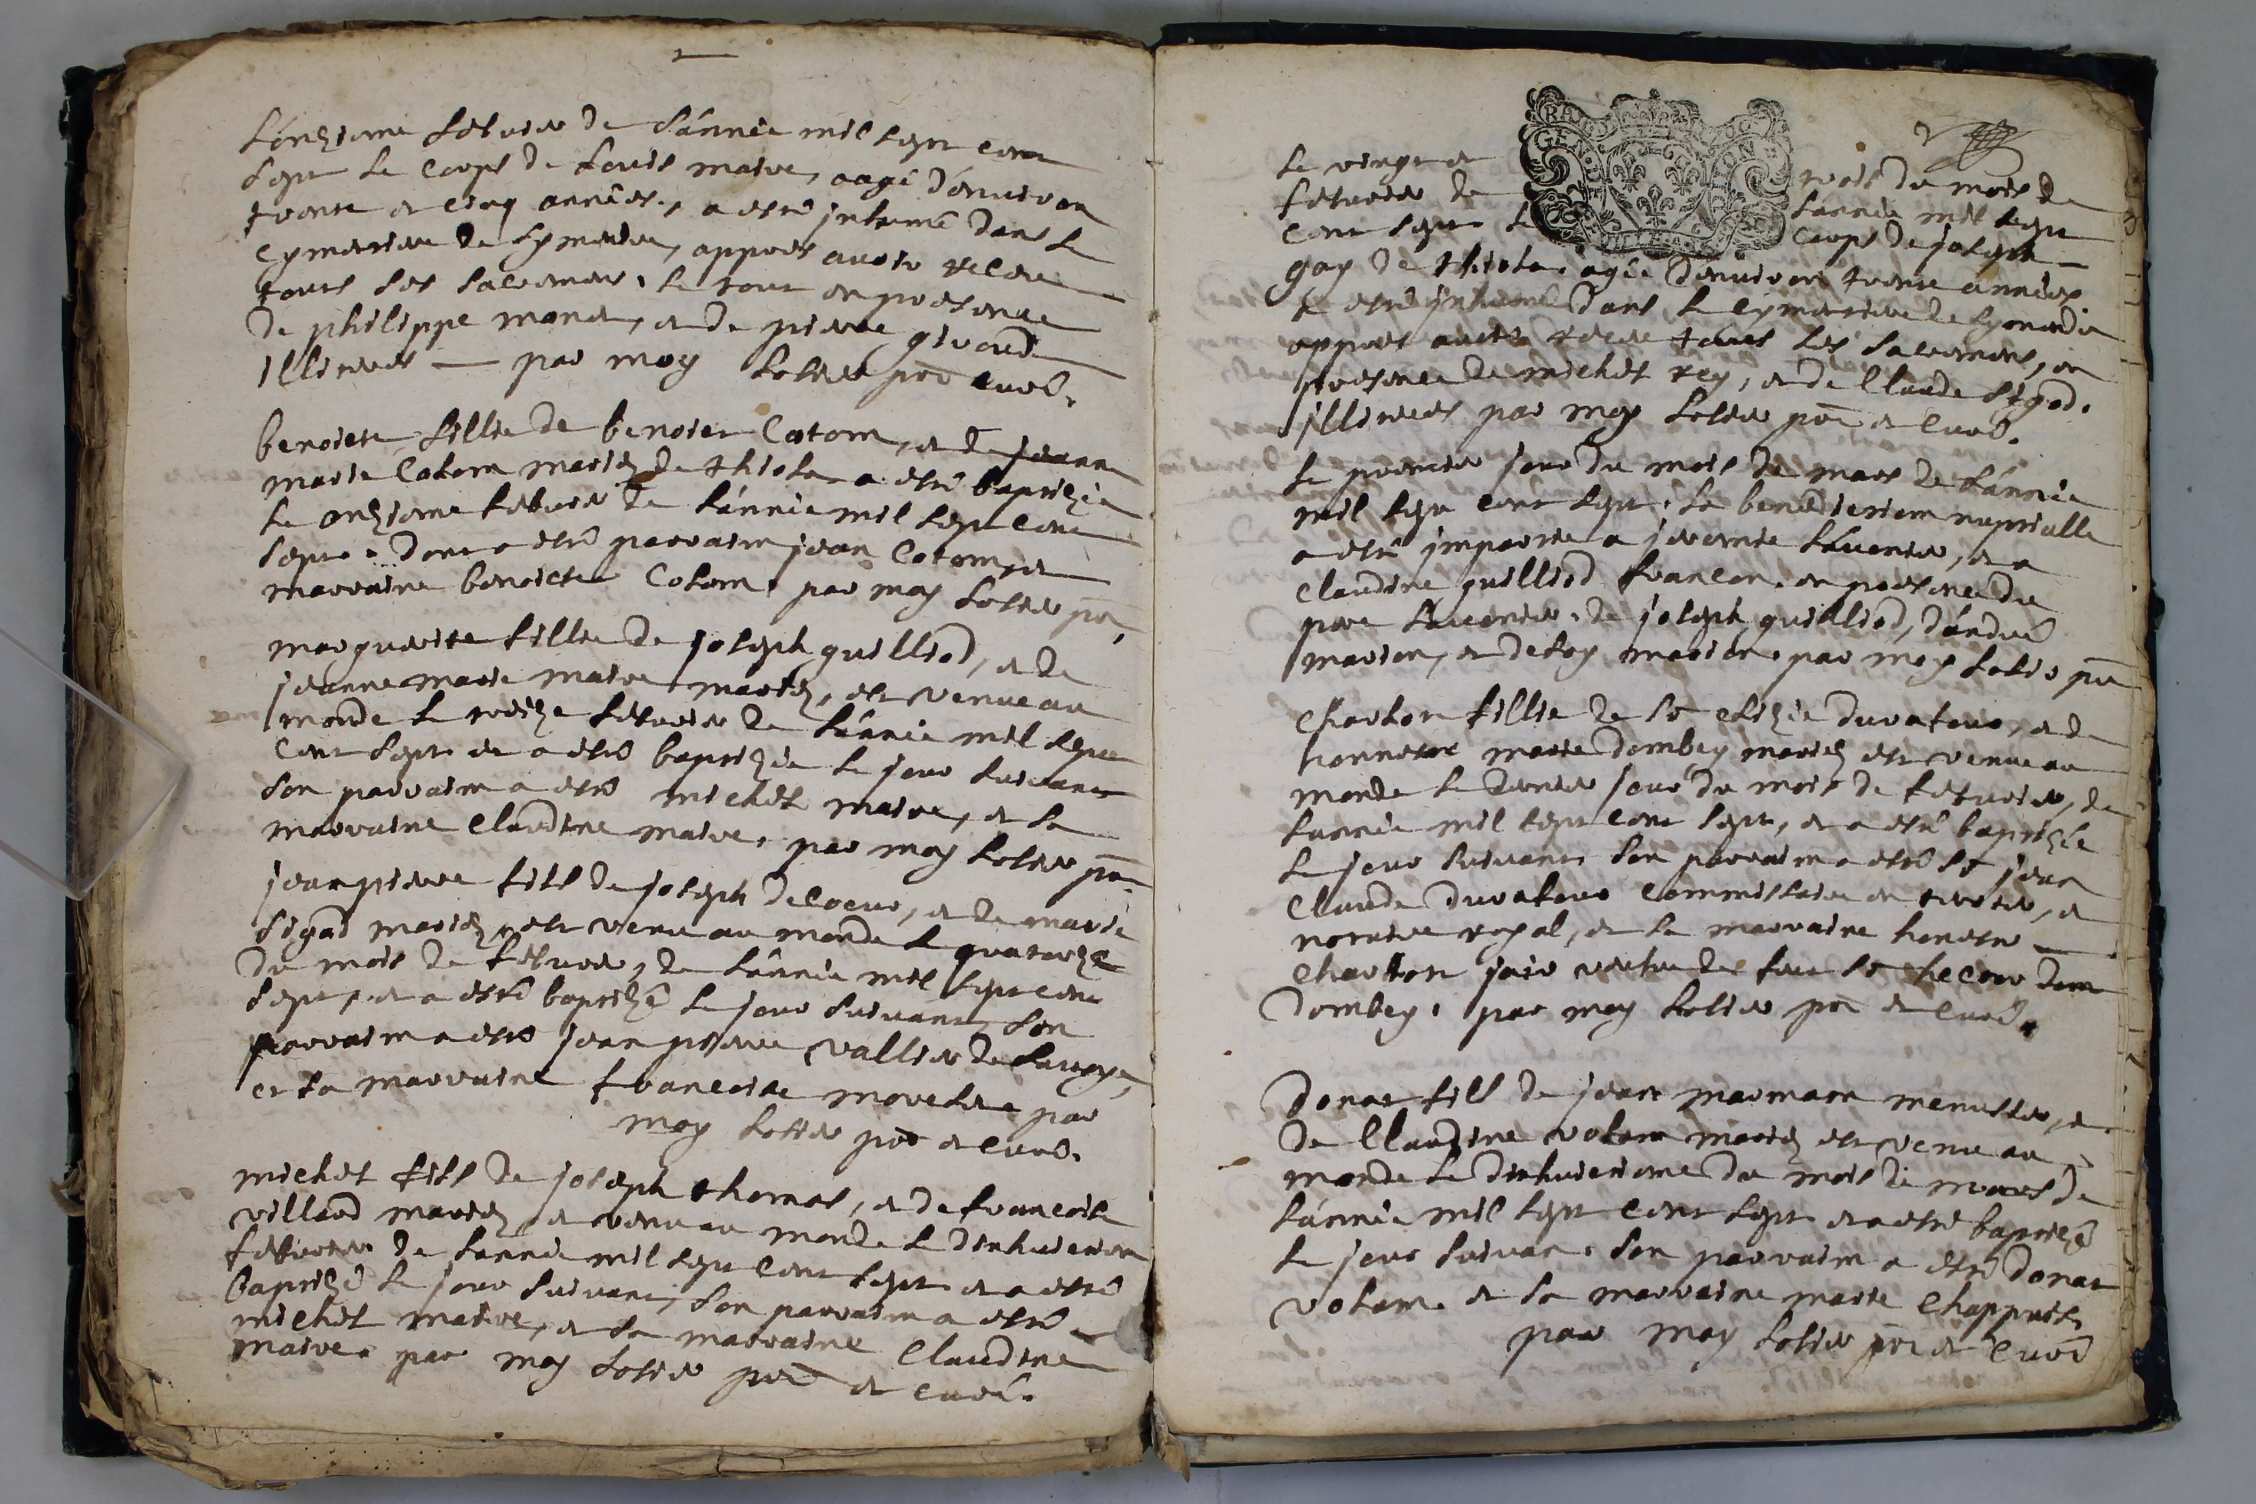 L'onziesme febvrier de l'année mil sept cent
sept le corps de Louis maire, aagé d'environ
trente et cinq années, a esté inhumé dans le
cymetiere de Symandre, appres avoir receu
tous ses sacremens, le tout en presence
de philippe monet, et de pierre giroud
illiterés — par moy pbr curé.
benoiste fillie de benoist Cotom, et de jeanne
marie Cotom mariés de thiole a esté baptizée
le onziesme febvrier de l'année mil sept cent
sept. dont a esté parrain jean Cotom, et
marraine benoiste Cotom. par moy pbr,
marguerite fillie de joseph guilliod, et de
jeanne marie maire mariés, est venue au
monde le treize febvrier de l'année mil sept
cent sept et a esté baptizée le jour suivant
son parrain a esté michel maire, et sa
marraine Claudine maire, par moy pbr
jean pierre fils de joseph decoeur, et de marie
sigod mariés, est venu au monde le quatorze
du mois de febvrier, de l'année mil sept cent
sept, et a esté baptizé le jour suivant, son
parrain a esté jean pierre vallier de
et sa marraine francoise par
moy pbr et curé.
michel fils de joseph thomas, et de francoise
villard mariés, est venu au monde le dixhuictiesme
febvrier de l'année mil sept cent sept et a esté
baptizé le jour suivant, son parrain a esté
michel maire, et sa marraine Claudine
maire. par moy pbr et curé.
2
le vingt et trois du mois de
febvrier de l'année mil sept
cent sept le corps de joseph
GEN. DE DIJON
gay de thiole, agée d'environ trente années
a esté inhumé dans le cymetiere de Symandre
appres avoir receu tous ses sacremens, en
presence de michel rey, et de Claude sigod.
illiterés par moy pbr et curé.
le premier jour du mois de mars de l'année
mil sept cent sept. la benediction nuptialle
a esté impartie a jeromie Lavenir, et a
Claudine guilliod francon. en presence de
pierre Lavenir. de joseph guilliod, d'andré
marion, et de marion. par moy pbr
Charlon fillie de sr duratour, et de
honneste marie dombey mariés est venue au
monde le dernier jour du mois de febvrier, de
l'année mil sept cent sept, et a esté baptizée
le jour suivant. son parrain a esté sr jean
Claude duratour commissaire en terrier, et
notaire royal, et sa marraine honeste
Charlon veufve de feut sr
dombey. par moy pbr et curé.
donat fils de jean marmara menusier, et
de Claudine volam mariés est venu au
monde le dixhuictiesme du mois de mars de
l'année mil sept cent sept et a esté baptizé
le jour suivan. son parrain a esté donat
volam. et sa marraine marie Chappuis.
par moy pbr et curé